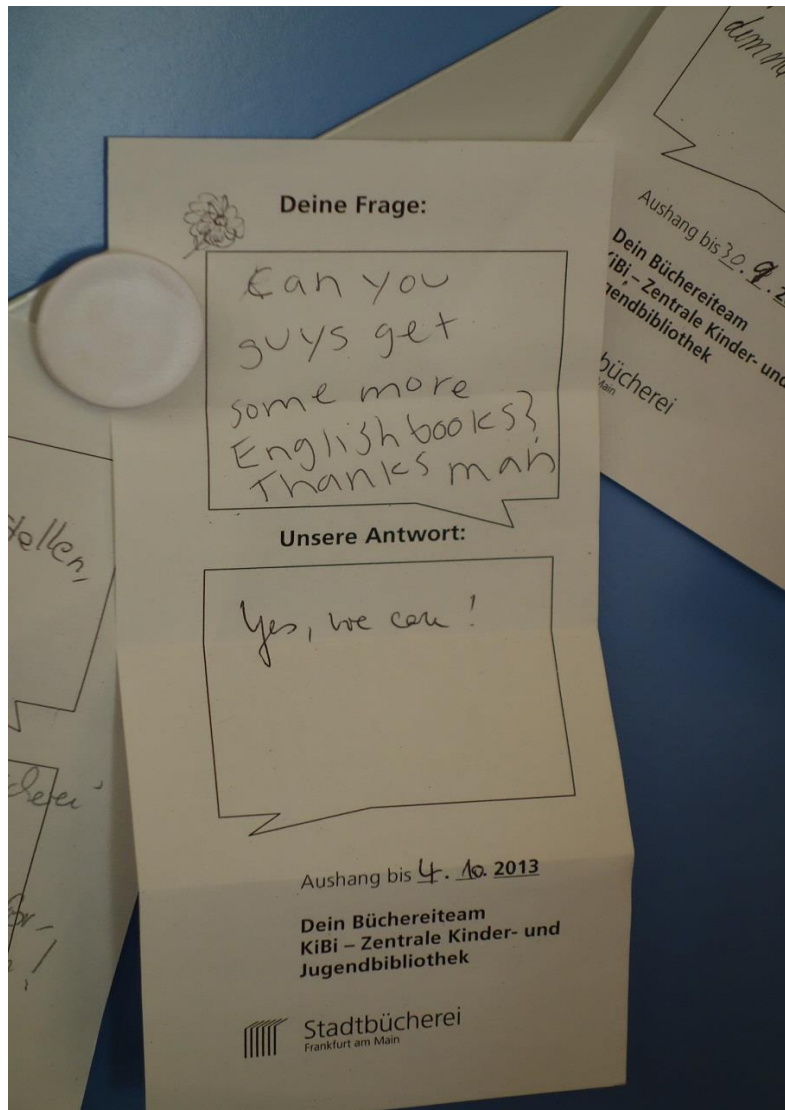 Deine Frage:
Can you
guys get
some more
English books?
Thanks man
Unsere Antwort:
Yes, we can!
Aushang bis 4. 10. 2013
Dein Büchereiteam
KiBi – Zentrale Kinder- und
Jugendbibliothek
Stadtbücherei
Frankfurt am Main
Aushang bis 30. 9.
Dein Büchereiteam
KiBi – Zentrale Kinder- und
Jugendbibliothek
bücherei
Main
tellen,